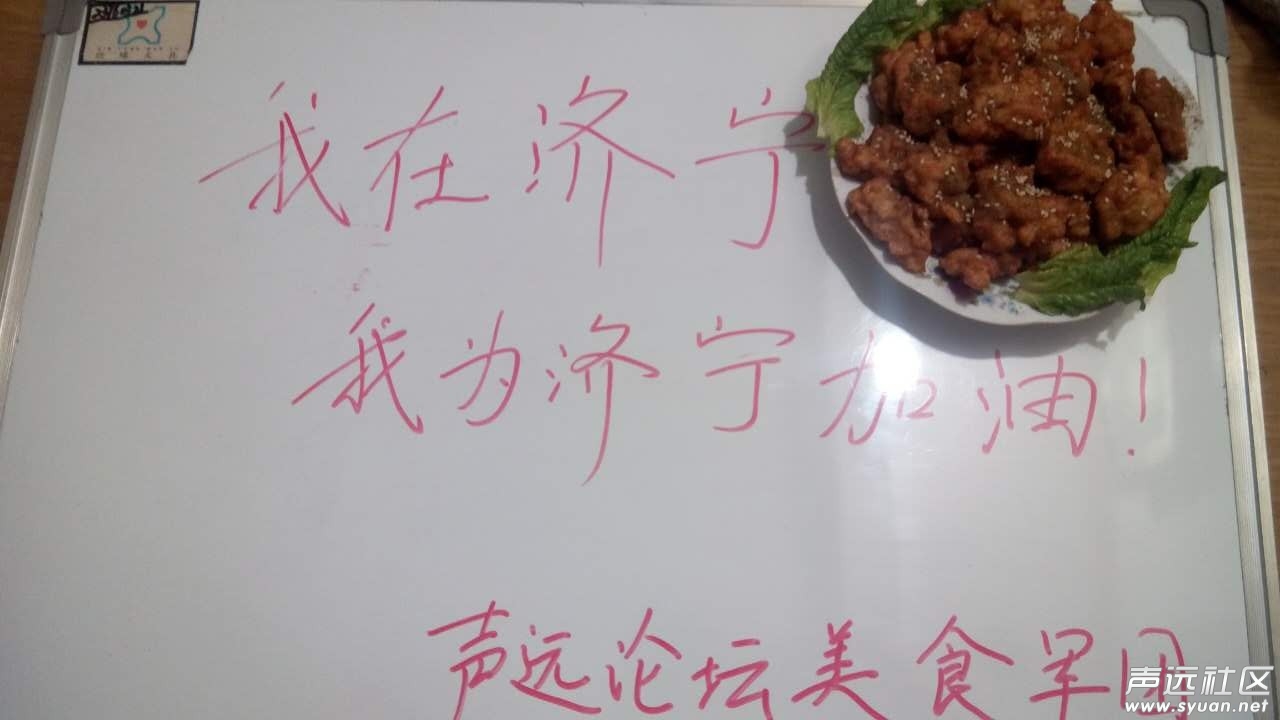 我在济宁
我为济宁加油!
声远论坛美食军团
声远社区
www.syuan.net